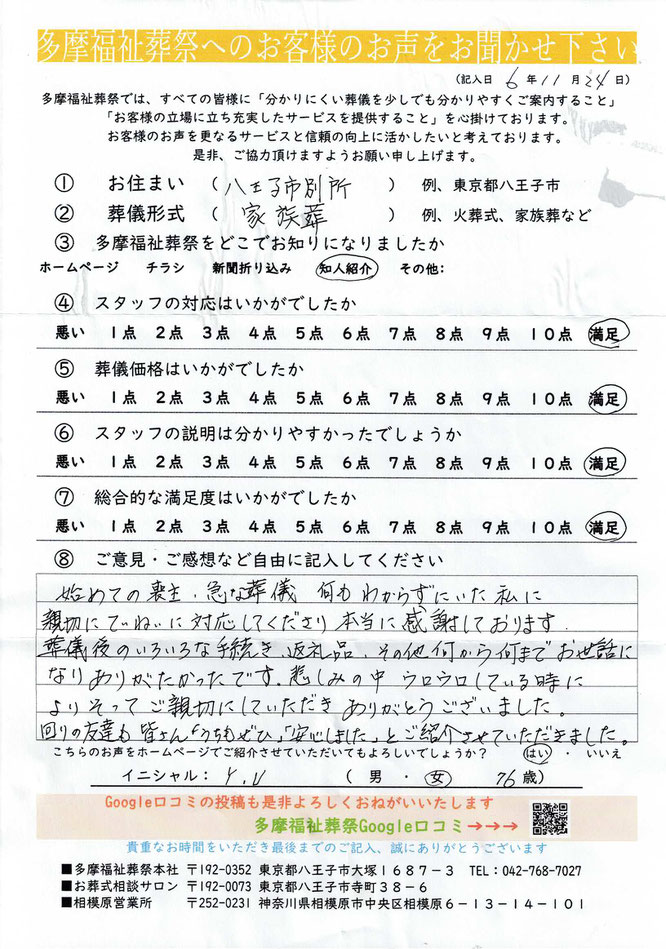 多摩福祉葬祭へのお客様のお声をお聞かせ下さい
（記入日 6 年 11 月 24 日）
多摩福祉葬祭では、すべての皆様に「分かりにくい葬儀を少しでも分かりやすくご案内すること」
「お客様の立場に立ち充実したサービスを提供すること」を心掛けております。
お客様のお声を更なるサービスと信頼の向上に活かしたいと考えております。
是非、ご協力頂けますようお願い申し上げます。
① お住まい （八王子市別所） 例、東京都八王子市
② 葬儀形式 （家族葬） 例、火葬式、家族葬など
③ 多摩福祉葬祭をどこでお知りになりましたか
ホームページ チラシ 新聞折り込み 知人紹介 その他：
④ スタッフの対応はいかがでしたか
悪い 1点 2点 3点 4点 5点 6点 7点 8点 9点 10点 満足
⑤ 葬儀価格はいかがでしたか
悪い 1点 2点 3点 4点 5点 6点 7点 8点 9点 10点 満足
⑥ スタッフの説明は分かりやすかったでしょうか
悪い 1点 2点 3点 4点 5点 6点 7点 8点 9点 10点 満足
⑦ 総合的な満足度はいかがでしたか
悪い 1点 2点 3点 4点 5点 6点 7点 8点 9点 10点 満足
⑧ ご意見・ご感想など自由に記入してください
始めての喪主・急な葬儀 何もわからずにいた私に
親切にていねいに対応してくださり本当に感謝しております.
葬儀後のいろいろな手続き、返礼品、その他何から何までお世話に
なりありがたかったです. 悲しみの中 ウロウロしている時に
よりそってご親切にしていただきありがとうございました。
回りの友達も皆さん「うちもぜひ」「安心しました」とご紹介させていただきました。
こちらのお声をホームページでご紹介させていただいてもよろしいでしょうか？ はい ・ いいえ
イニシャル： Y.U （ 男 ・ 女 76 歳）
Google口コミの投稿も是非よろしくおねがいいたします
多摩福祉葬祭Google口コミ→→→
貴重なお時間をいただき最後までのご記入、誠にありがとうございます
■多摩福祉葬祭本社 〒192-0352 東京都八王子市大塚1687－3 TEL：042-768-7027
■お葬式相談サロン 〒192-0073 東京都八王子市寺町38－6
■相模原営業所 〒252-0231 神奈川県相模原市中央区相模原6－13－14－101